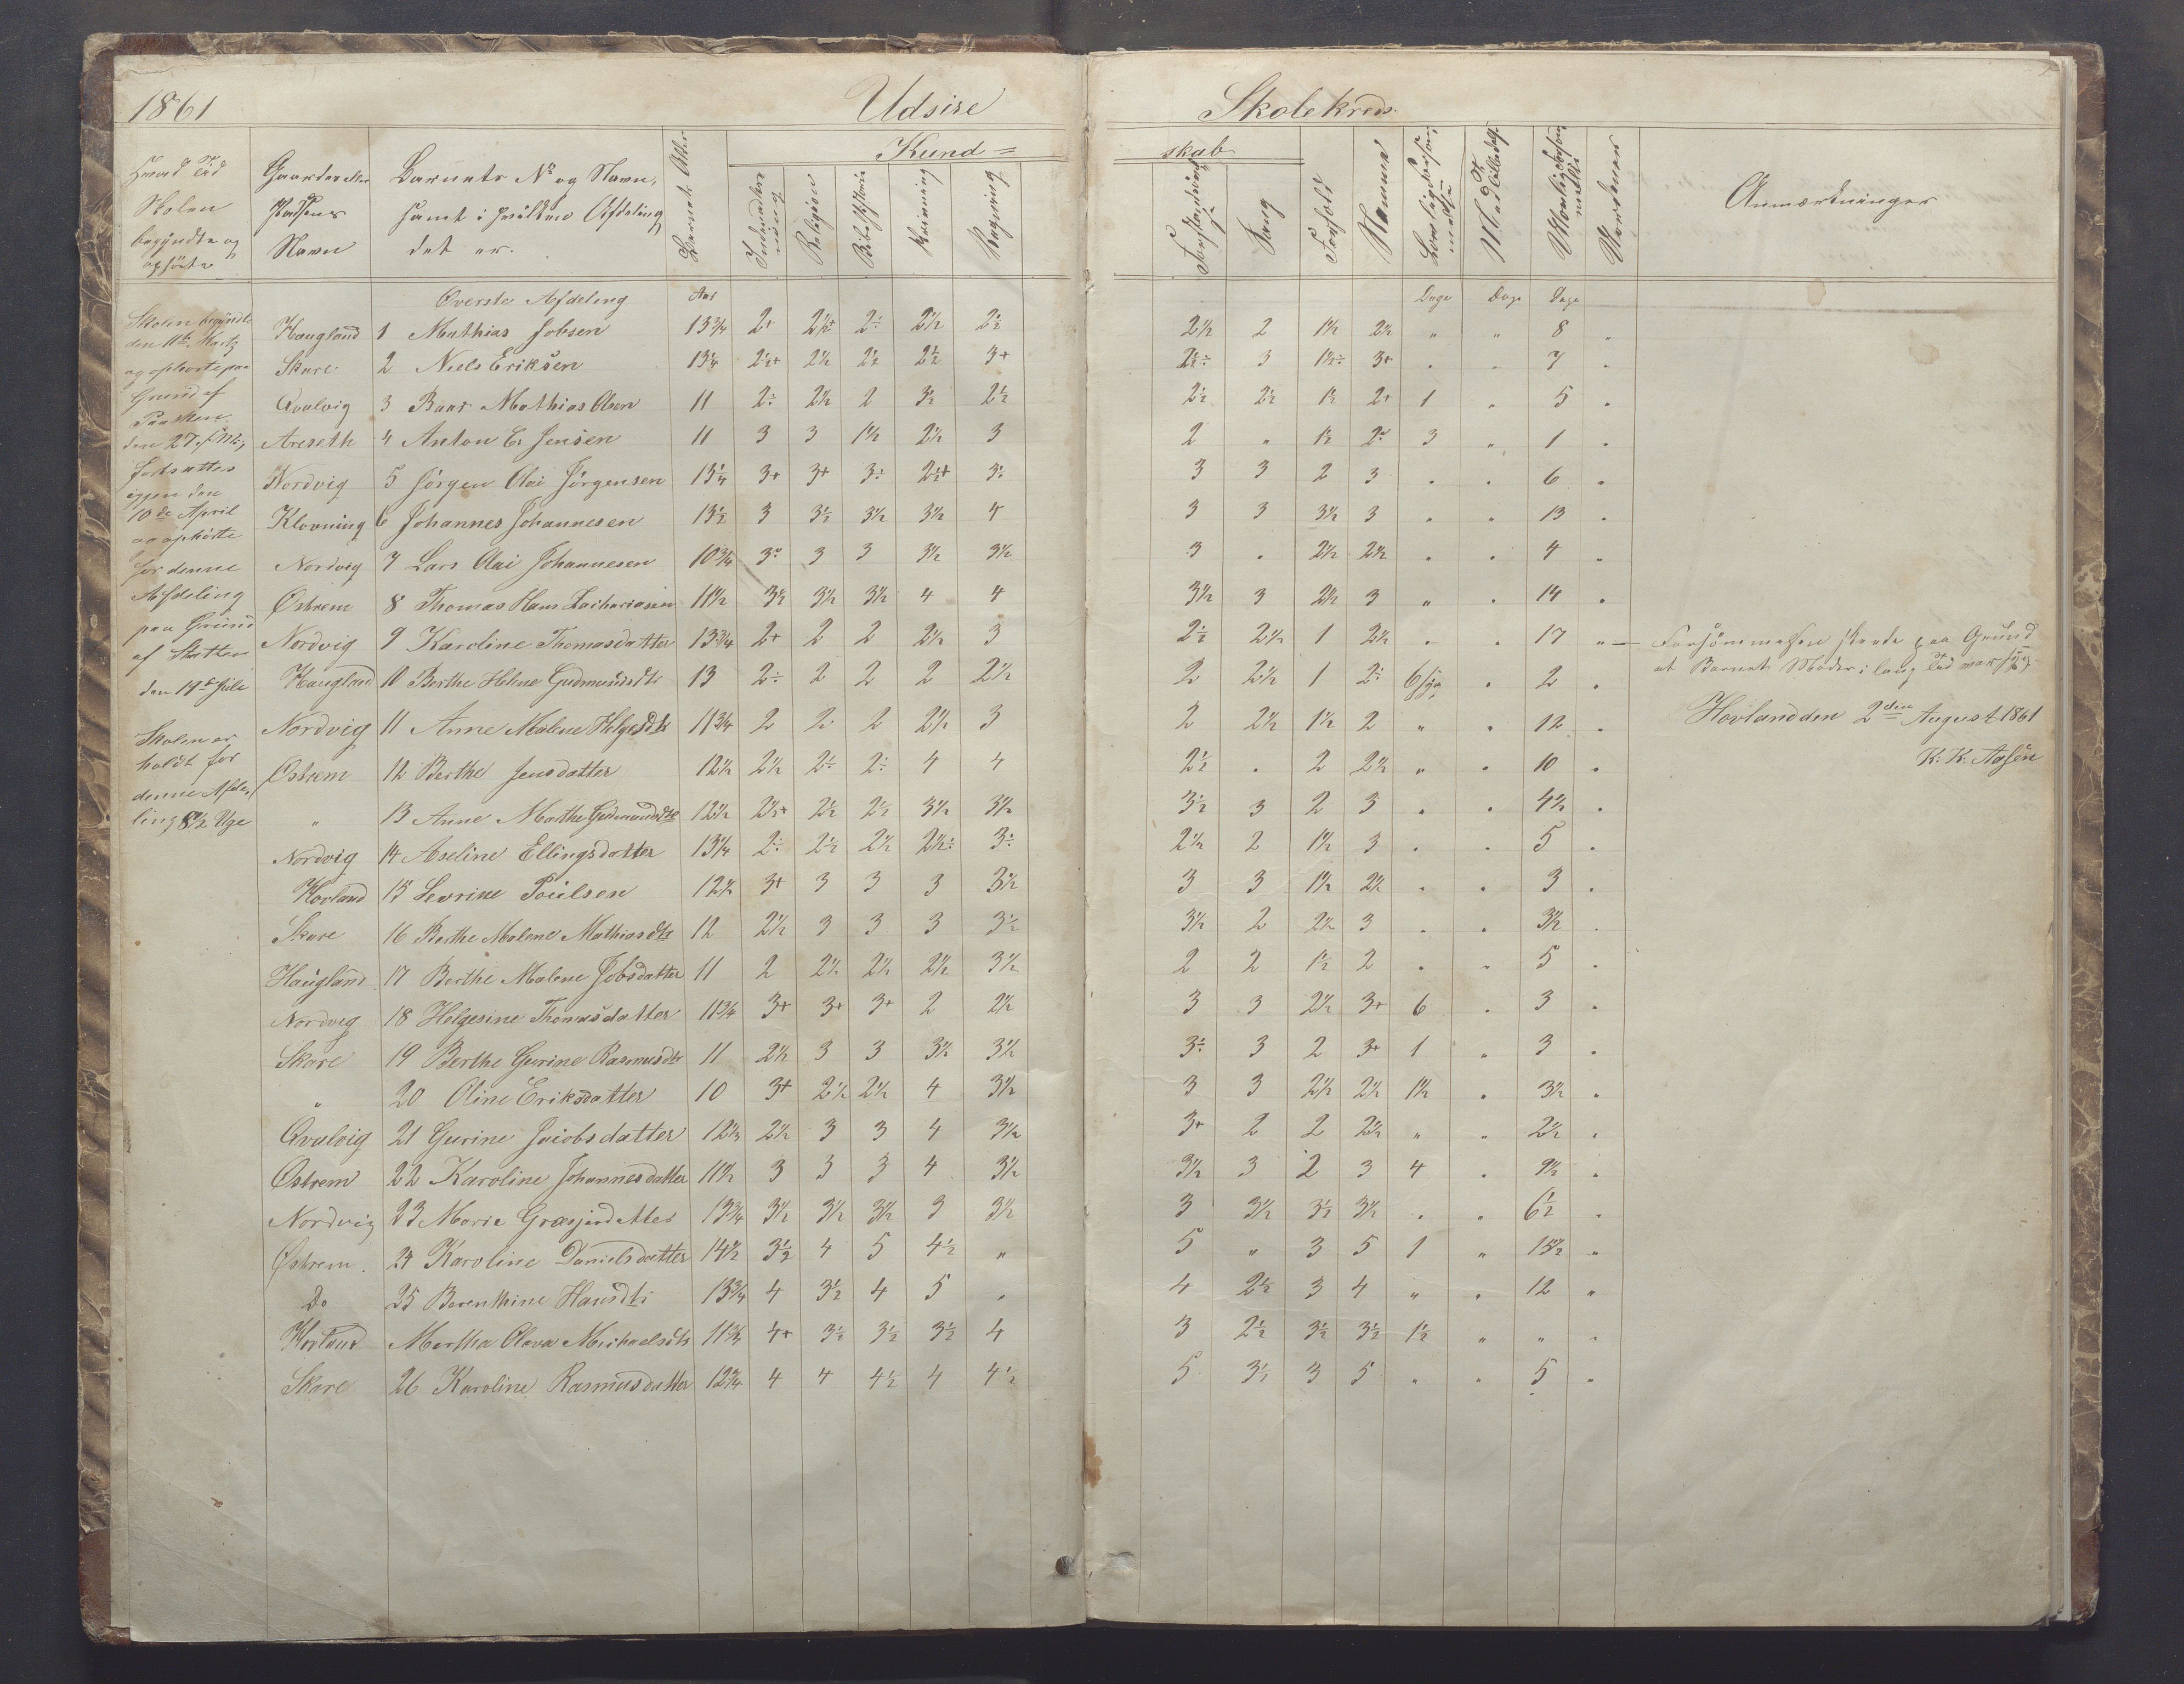 1861 Udsire Skolekreds.
Hvad Tid Skolen begyndte og ophörte
Gaardens eller Pladsens Navn
Barnets No og Navn, samt i hvilken Afdeling det er.
Barnets Alder
Kund= skab
Religion
Bibelhistorie
Skrivning
Regning
Sang
Forhold
Anmærkninger
Överste Afdeling Aar Dage Dage Dage
Skolen begyndte
den 11te Martz
og ophörte paa
Grund af
Paasken
den 27. f. M.,
fortsattes
igjen den
10de April
og ophörte
for denne
Afdeling
paa Grund
af Slaatten
den 19de Juli
Skolen er
holdt for
denne Afde-
ling 8½ Uge
Haugland 1 Mathias Jobsen 13¾ 2+ 2½+ 2÷ 2½ 2½ 2½ 2 1½ 2½ " " 8 "
Skare 2 Niels Eriksen 13¼ 2½+ 2½ 2½ 2½ 3+ 2½÷ 3 1½÷ 3+ " " 7 "
Qvalvig 3 Baar Mathias Olsen 11 2÷ 2½ 2 3½ 2½ 2½ 2½ 1½ 2+ 1 " 5 "
Areseth 4 Anton E. Jensen 11 3 3 1½ 2½ 3 2 " 1½ 2÷ 3 " 1 "
Nordvig 5 Jörgen Olai Jörgensen 13¼ 3+ 3+ 3÷ 2½+ 3÷ 3 3 2 3 " " 6 "
Klovning 6 Johannes Johannesen 13½ 3 3½ 3½ 3½ 4 3 3 3½ 3 " " 13 "
Nordvig 7 Lars Olai Johannesen 10¾ 3÷ 3 3 3½ 3½ 3 " 2½ 2½ " " 4 "
Östrem 8 Thomas Hans Zachariasen 11½ 3½ 3½ 3½ 4 4 3½ 3 2½ 3 " " 14 "
Nordvig 9 Karoline Thomasdatter 13¾ 2+ 2 2 2½ 3 2½ 2½ 1 2½ " " 17 " — Forsömmelsen skede paa Grund
at Barnets Moder i lang Tid var syg
Haugland 10 Berthe Helene Gudmundsdtr 13 2÷ 2 2 2 2½ 2 2½ 1 2÷ 6 syg " 2 "
Nordvig 11 Anne Malene Helgesdtr 11¾ 2 2 2 2½ 3 2 2½ 1½ 2 " " 12 "
Hovland den 2den August 1861
K. K. Aasen
Östrem 12 Berthe Jensdatter 12½ 2½ 2½ 2÷ 4 4 2½ " 2 2½ " " 10 "
" 13 Anne Marthe Gudmundsdtr 12½ 2½+ 2½ 2½ 3½ 3½ 3½ 3 2 3 " " 4½ "
Nordvig 14 Aseline Ellingsdatter 13¼ 2÷ 2½ 2½ 2½÷ 3÷ 2½ 2 1½ 3 " " 5 "
Hovland 15 Sevrine Poulsen 12½ 3+ 3 3 3 3½ 3 3 1½ 2½ " " 3 "
Skare 16 Berthe Malene Mathiasdtr 12 2½ 3 3 3 3½ 3½ 2 2½ 3 " " 3½ "
Haugland 17 Berthe Malene Jobsdatter 11 2 2½ 2½ 2½ 3½ 2 2 1½ 2 " " 5 "
Nordvig 18 Helgesine Thomasdatter 11¾ 3+ 3+ 3+ 2 2½ 3 3 2½ 3+ 6 " 3 "
Skare 19 Berthe Gurine Rasmusdtr 11 2½ 3 3 3½ 3½ 3÷ 3 2 3+ 1 " 3 "
" 20 Oline Eriksdatter 10 3+ 2½ 2½ 4 3½ 3 3 2½ 2½ 1½ " 3½ "
Qvalvig 21 Gurine Jacobsdatter 12½ 2½ 3 3 4 3½ 3+ 2 2 2½ " " 2½ "
Östrem 22 Karoline Johannesdatter 11½ 3 3 3 4 3½ 3½ 3 2 3 4 " 9½ "
Nordvig 23 Marie Græsjerdatter 13¾ 3½ 3½ 3½ 3 3½ 3 3½ 3½ 3½ " " 6½ "
Östrem 24 Karoline Danielsdatter 14½ 3½ 4 5 4½ " 5 " 3 5 1 " 15½ "
Do 25 Berenthine Hansdtr 13¾ 4 3½ 4 5 " 4 2½ 3 4 " " 12 "
Hovland Martha Olava Michaelsdtr 11¾ 4+ 3½ 3½ 3½ 4 3 2½ 3½ 3½ 1½ " " "
Skare 26 Karoline Rasmusdatter 12¾ 4 4 4½ 4 4½ 5 3½ 3 5 " " 5 "